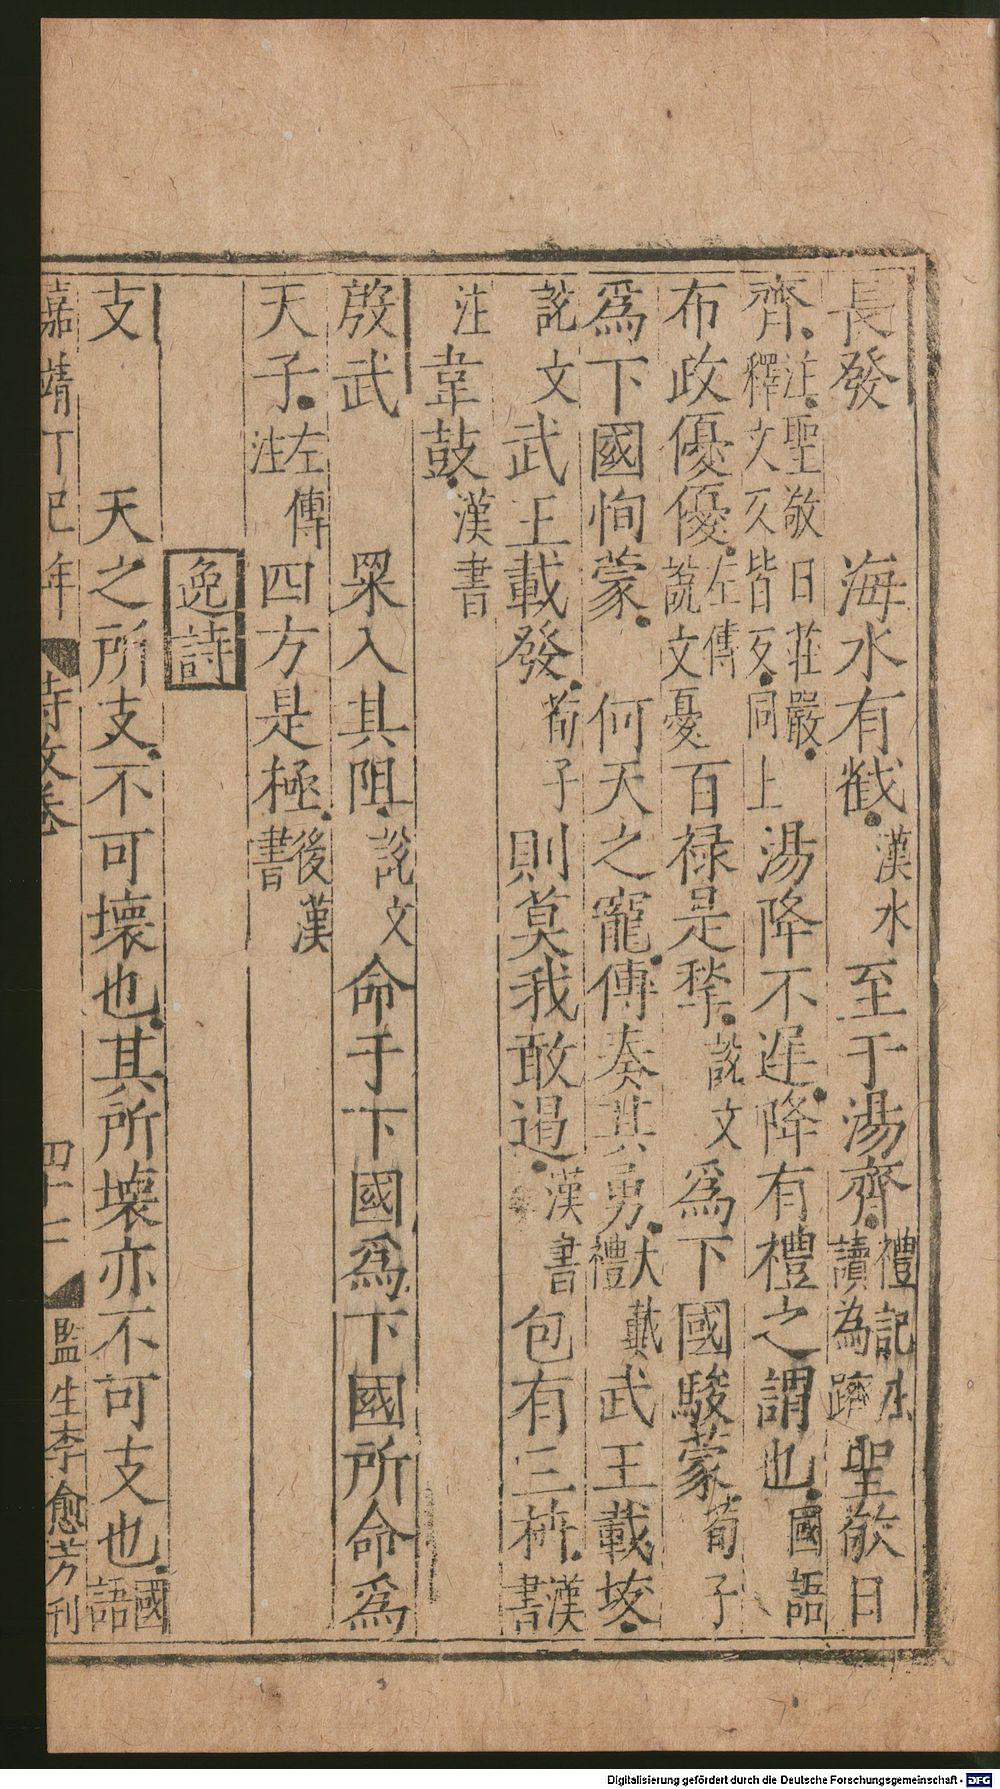 長發　海水有㦸漢水　至于湯齊禮記注讀為躋　聖敬日
齊注聖敬日莊嚴釋文又皆又同上　湯降不遲降有禮之謂也國語
布政優優左傳說文憂　百祿是揫說文　為下國駿蒙荀子
為下國恂蒙　何天之寵傳奏其勇大戴禮　武王載垅
說文　武王載發荀子　則莫我敢遏漢書　包有三枿漢書
注　韋鼓漢書
殷武　罙入其阻說文　命于下國為下國所命為
天子左傳注　四方是極後漢書
逸詩
支　天之所支不可壞也其所壞亦不可支也國語
嘉靖丁巳年　詩攷卷　四十二　監生李愈芳刊
Digitalisierung gefördert durch die Deutsche Forschungsgemeinschaft - DFG